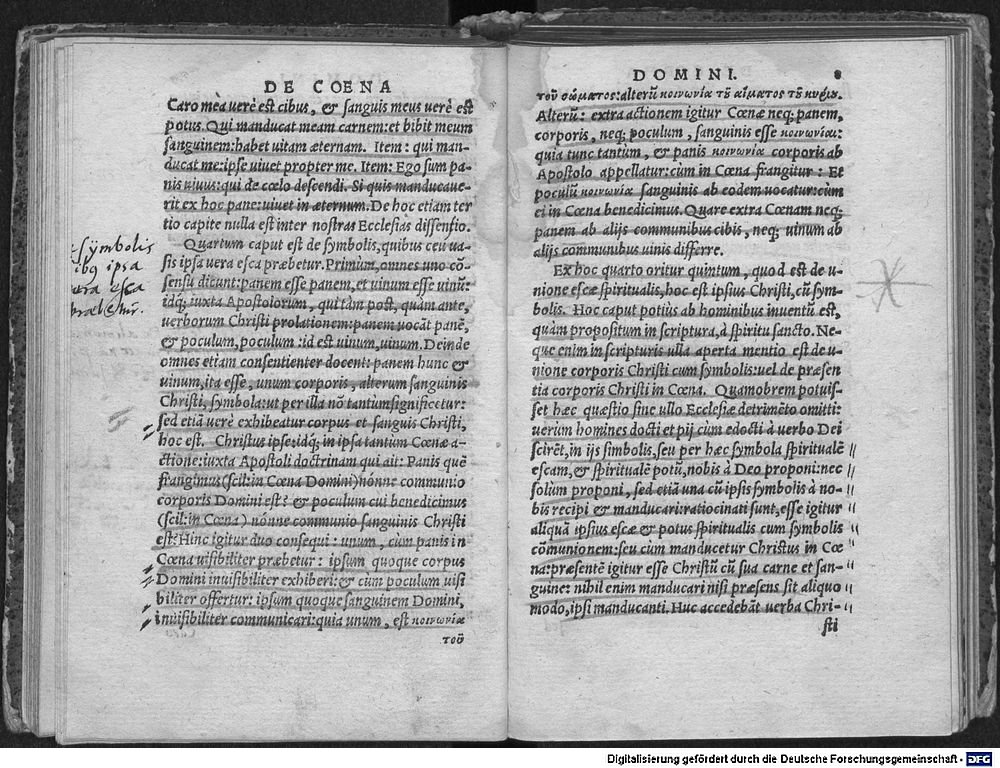 DE COENA
Caro mea uerè est cibus, & sanguis meus uerè est
potus. Qui manducat meam carnem: et bibit meum
sanguinem: habet uitam æternam. Item: qui man-
ducat me: ipse uiuet propter me. Item: Ego sum pa-
nis uiuus: qui de cœlo descendi. Si quis manducaue-
rit ex hoc pane: uiuet in æternum. De hoc etiam ter
tio capite nulla est inter nostras Ecclesias dissensio.
Quartum caput est de symbolis, quibus ceu ua-
sis ipsa uera esca præbetur. Primùm, omnes uno cō-
sensu dicunt: panem esse panem, et uinum esse uinū:
idq; iuxta Apostolorum, qui tàm post, quàm ante,
uerborum Christi prolationem: panem uocāt panē,
& poculum, poculum: id est uinum, uinum. Deinde
omnes etiam consentienter docent: panem hunc &
uinum, ita esse, unum corporis, alterum sanguinis
Christi, symbola: ut per illa nō tantùm significetur:
sed etiā uerè exhibeatur corpus et sanguis Christi,
hoc est. Christus ipse: idq; in ipsa tantùm Cœnæ a-
ctione: iuxta Apostoli doctrinam qui ait: Panis quē
frangimus (scil: in Cœna Domini) nónne communio
corporis Domini est? & poculum cui benedicimus
(scil: in Cœna) nónne communio sanguinis Christi
est? Hinc igitur duo consequi: unum, cùm panis in
Cœna uisibiliter præbetur: ipsum quoque corpus
Domini inuisibiliter exhiberi: & cùm poculum uisi
biliter offertur: ipsum quoque sanguinem Domini,
inuisibiliter communicari: quia unum, est κοινωνία
τοῦ
symbolis
ibq ipsa
uera esca
præbetur.
DOMINI. 8
τοῦ σώματος: alterū κοινωνία τȣ͂ αἵματος τȣ͂ κυρίȣ.
Alterū: extra actionem igitur Cœnæ neq; panem,
corporis, neq; poculum, sanguinis esse κοινωνίαν:
quia tunc tantùm, & panis κοινωνία corporis ab
Apostolo appellatur: cùm in Cœna frangitur: Et
poculū κοινωνία sanguinis ab eodem uocatur: cùm
ei in Cœna benedicimus. Quare extra Cœnam neq;
panem ab alijs communibus cibis, neq; uinum ab
alijs communibus uinis differre.
Ex hoc quarto oritur quintum, quod est de u-
nione escæ spiritualis, hoc est ipsius Christi, cū sym-
bolis. Hoc caput potiùs ab hominibus inuentū est,
quàm propositum in scriptura, à spiritu sancto. Ne-
que enim in scripturis ulla aperta mentio est de u-
nione corporis Christi cum symbolis: uel de præsen
tia corporis Christi in Cœna. Quamobrem potuis-
set hæc quæstio sine ullo Ecclesiæ detrimēto omitti:
uerùm homines docti et pij cùm edocti à uerbo Dei
scirēt, in ijs simbolis, seu per hæc symbola spiritualē
escam, & spiritualē potū, nobis à Deo proponi: nec
solùm proponi, sed etiā una cū ipsis symbolis à no-
bis recipi & manducari: ratiocinati sunt, esse igitur
aliquā ipsius escæ & potus spiritualis cum symbolis
cōmunionem: seu cùm manducetur Christus in Cœ
na: præsentē igitur esse Christū cū sua carne et san-
guine: nihil enim manducari nisi præsens sit aliquo
modo, ipsi manducanti. Huc accedebāt uerba Chri-
sti
Digitalisierung gefördert durch die Deutsche Forschungsgemeinschaft - DFG